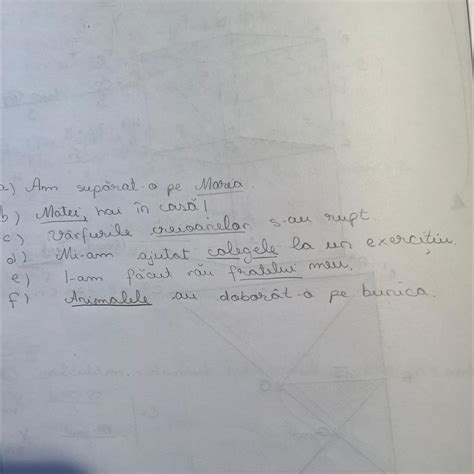 a) Am supărat-o pe Maria.
b) Matei, hai în casă!
c) Vârfurile creioanelor s-au rupt.
d) Mi-am ajutat colegele la un exercițiu.
e) I-am făcut rău fratelui meu.
f) Animalele au doborât-o pe bunica.